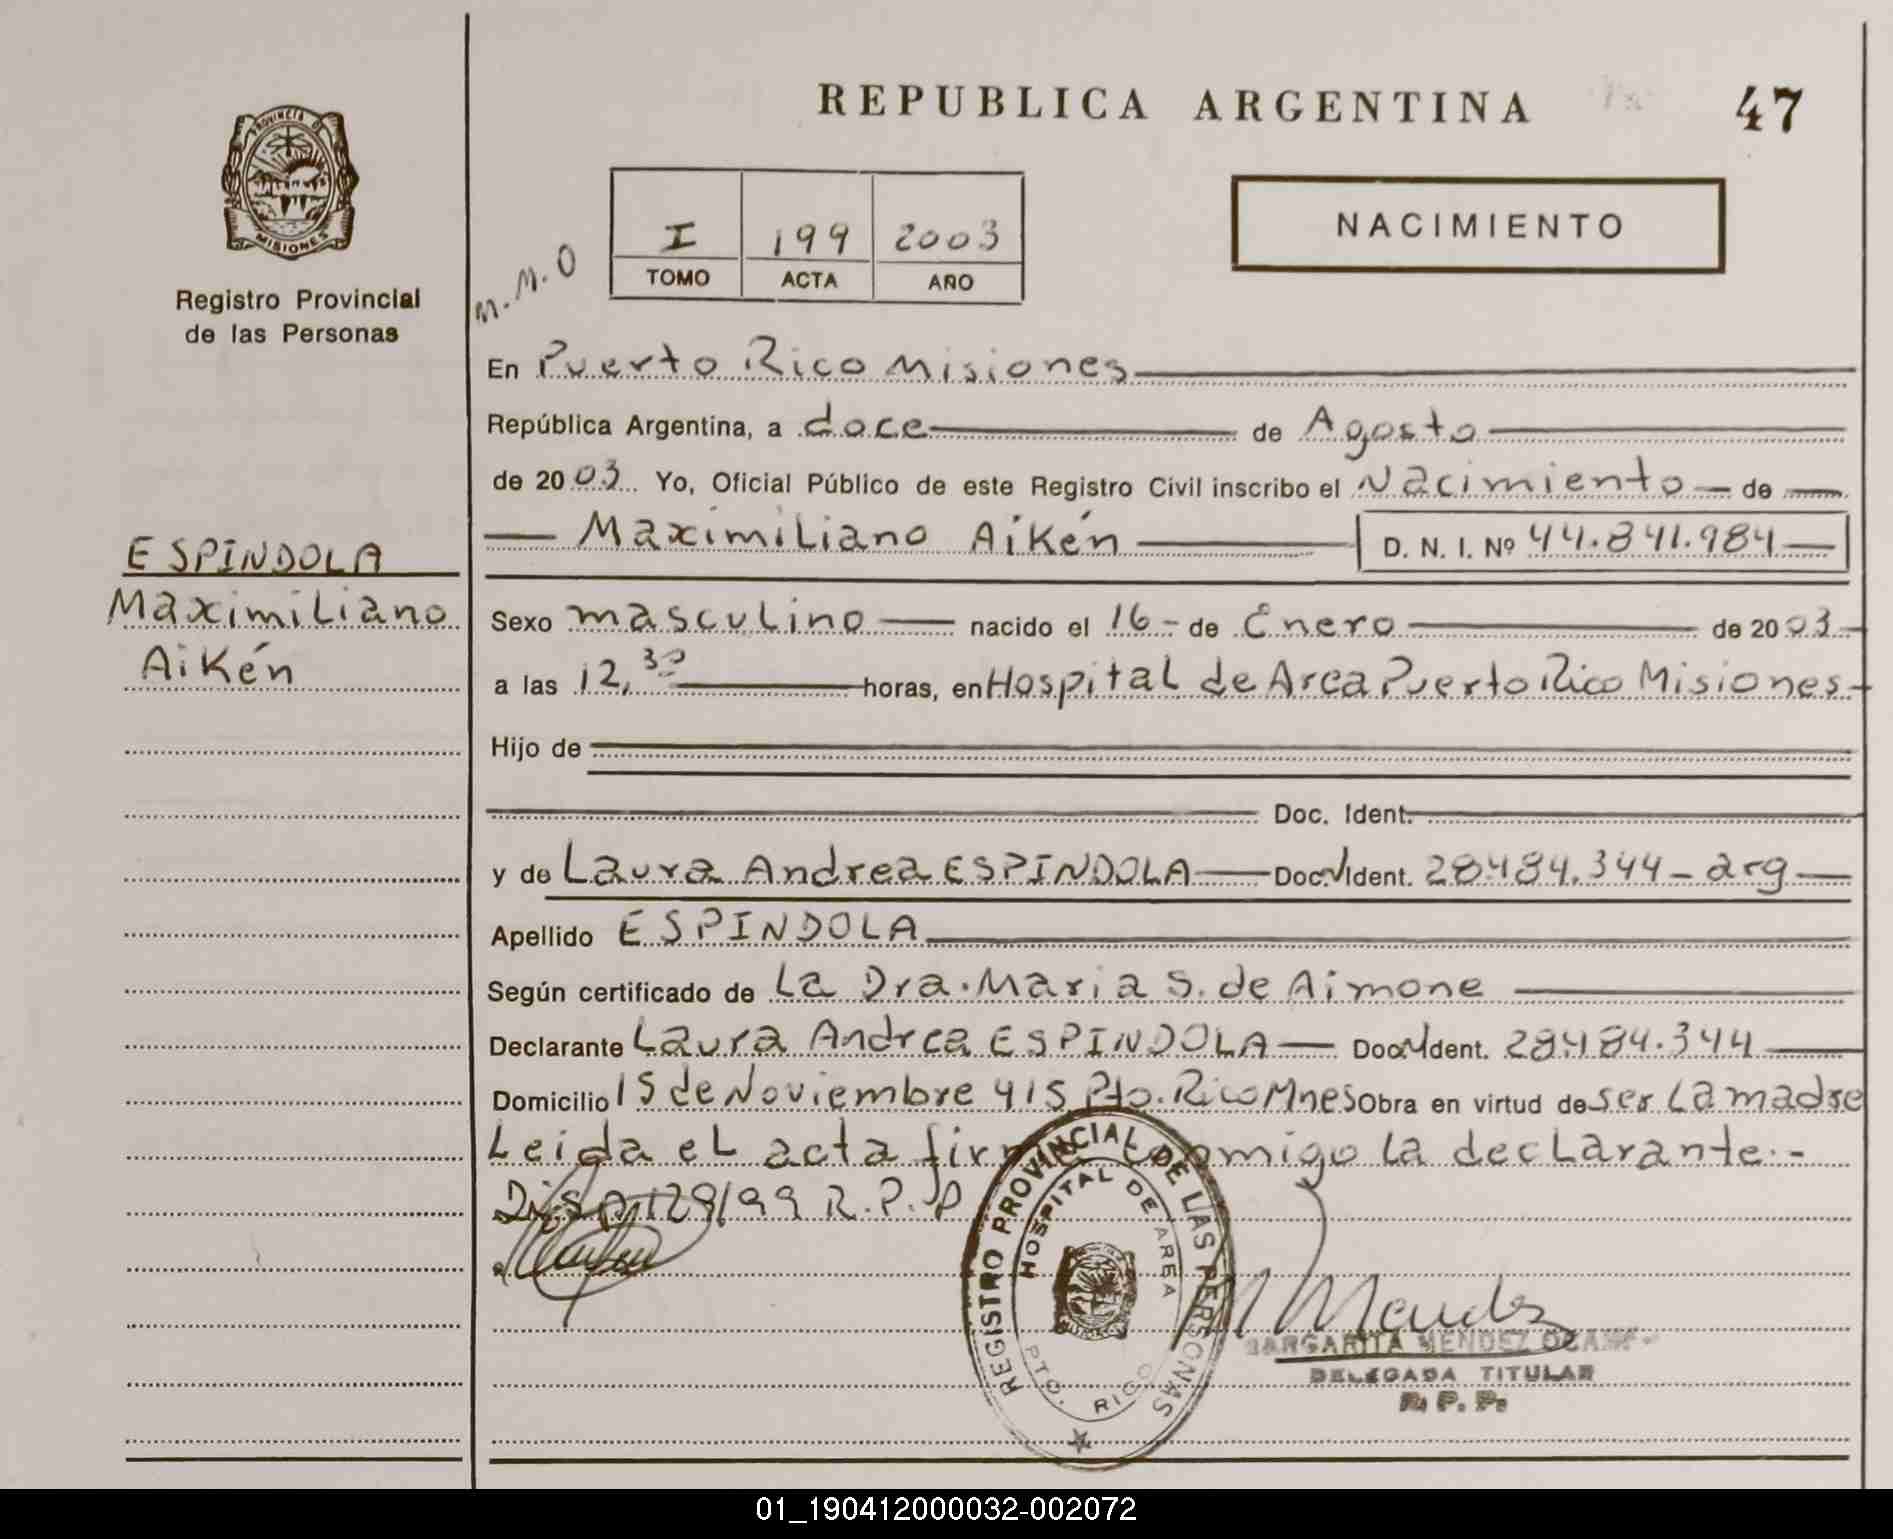 REPUBLICA ARGENTINA
47
PROVINCIA DE
MISIONES
Registro Provincial
de las Personas
M.M.O
I 199 2003
TOMO ACTA AÑO
NACIMIENTO
En Puerto Rico Misiones
República Argentina, a doce de Agosto
de 2003 Yo, Oficial Público de este Registro Civil inscribo el Nacimiento de
Maximiliano Aikén D. N. I. Nº 44.841.984
ESPINDOLA
Maximiliano
Aikén
Sexo masculino nacido el 16 - de Enero de 2003
a las 12,30 horas, en Hospital de Area Puerto Rico Misiones
Hijo de
Doc. Ident.
y de Laura Andrea ESPINDOLA Doc. Ident. 28.484.344 - arg
Apellido ESPINDOLA
Según certificado de La Dra. Maria S. de Aimone
Declarante Laura Andrea ESPINDOLA Doc. Ident. 28.484.344
Domicilio 15 de Noviembre 415 Pto. Rico Mnes Obra en virtud de ser La madre
Leida eL acta firma conmigo la decLarante.-
Disp 128/99 R.P.P
REGISTRO PROVINCIAL DE LAS PERSONAS
HOSPITAL DE AREA
PTO. RICO
M Mendez
MARGARITA MENDEZ OCAMPO
DELEGADA TITULAR
R. P. P.
01_190412000032-002072